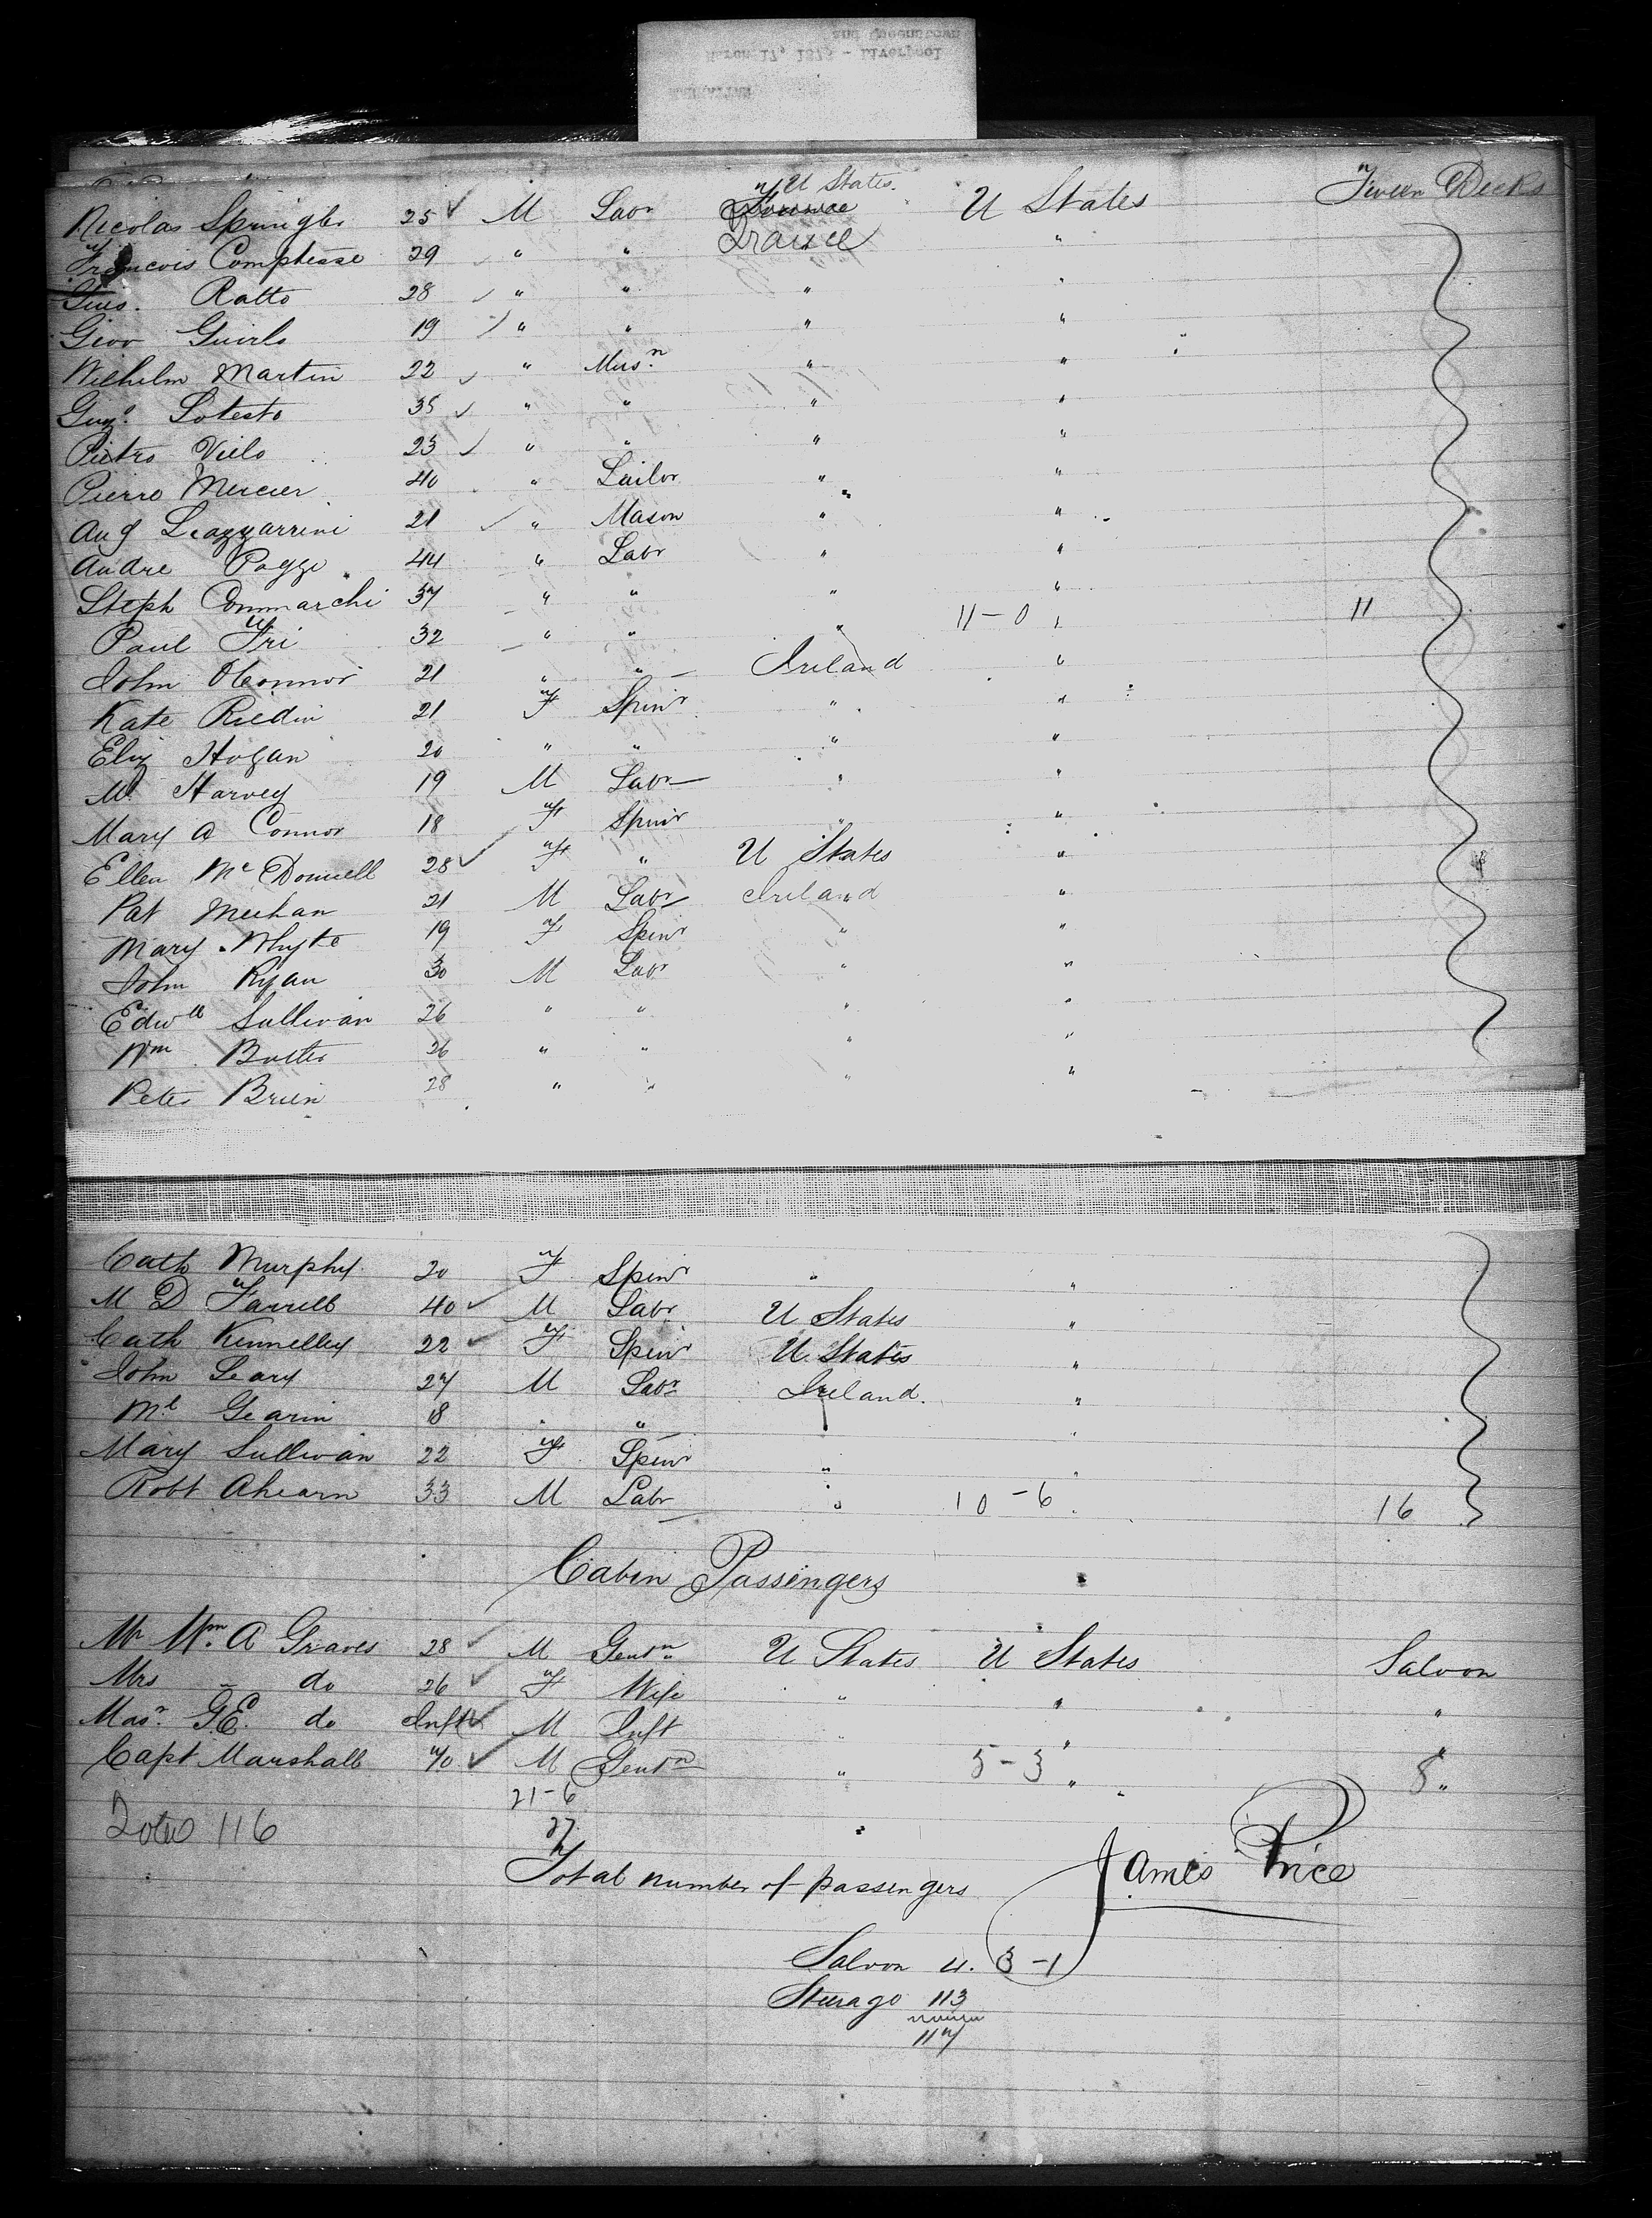 and Queenstown
March 17, 1873 - Liverpool
U States.
Nicolas Springler 25 ✓ M Labr France U States Tween Decks
Francois Comptesse 29 " " France "
Gius. Ratto 28 ✓ " " " "
Giov Guirlo 19 ✓ " " " "
Wilhelm Martin 22 ✓ " Musn " "
Gugo. Sotesto 35 ✓ " " " "
Pietro Vielo 23 ✓ " " " "
Pierre Mercier 40 " Sailor " "
Aug Leazzarrini 21 ✓ " Mason " "
Andre Poggi 44 " Labr " "
Steph Commarchi 37 " " " "
Paul Fri 32 " " " 11-0 " 11
John OConnor 21 " " Ireland "
Kate Riedin 21 F Spinr " "
Eliz Hogan 20 " " " "
Ml Harvey 19 M Labr " "
Mary A Connor 18 F Spinr " "
Ellen McDonnell 28 ✓ F " U States "
Pat Meehan 21 M Labr Ireland "
Mary Whyte 19 F Spinr " "
John Ryan 30 M Labr " "
Edwd Sullivan 26 " " " "
Wm Butler 26 " " " "
Peter Brien 28 " " " "
Cath Murphy 20 F Spinr " "
M D Farrell 40 ✓ M Labr U States "
Cath Kennelley 22 ✓ F Spinr U States "
John Leary 27 M Labr Ireland. "
Ml Gearin 18 " " "
Mary Sullivan 22 F Spinr " "
Robt Ahearn 33 M Labr " 10-6 16
Cabin Passengers
Mr Wm. A Graves 28 ✓ M Gentn U States U States Saloon
Mrs - do 26 ✓ F Wife " " "
Masr. G.E. do Inft ✓ M Inft " " "
Capt Marshall 70 ✓ M Gentn " 5-3 " 8 "
21-6
27
Total 116
Total number of passengers
James Price
Saloon 4. 3-1
Steerage 113
117